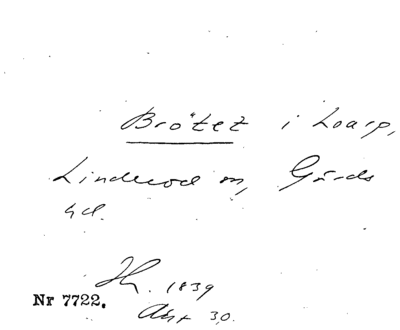 Brötet i Loarp,
Linderod sn, Gärds
hd.
Hr. 1839
Nr 7722.
Akt 30.